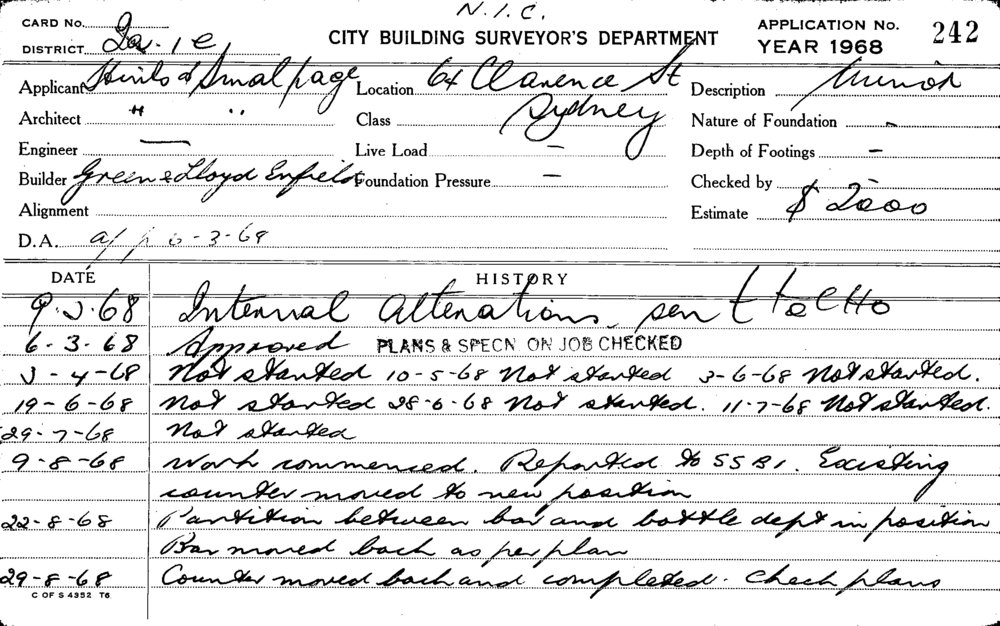 N.I.C.
CARD No.
CITY BUILDING SURVEYOR'S DEPARTMENT
APPLICATION No. 242
YEAR 1968
DISTRICT
Applicant & Smallpage
Location 64 Clarence St
Description Minor
Architect " "
Class Sydney
Nature of Foundation -
Engineer —
Live Load -
Depth of Footings -
Builder Green & Lloyd Enfield
Foundation Pressure -
Checked by
Alignment
Estimate $ 2000
D.A. app 6-3-68
DATE HISTORY
68 Internal Alterations, sent to CHO
6-3-68 Approved PLANS & SPECN ON JOB CHECKED
3-4-68 Not started 10-5-68 Not started 3-6-68 Not started.
19-6-68 Not started 28-6-68 Not started. 11-7-68 Not started.
29-7-68 Not started
9-8-68 Work commenced. Reported to SSBI. Existing
counter moved to new position
22-8-68 Partition between bar and bottle dept in position
Bar moved back as per plan
29-8-68 Counter moved back and completed. Check plans
C OF S 4352 T6